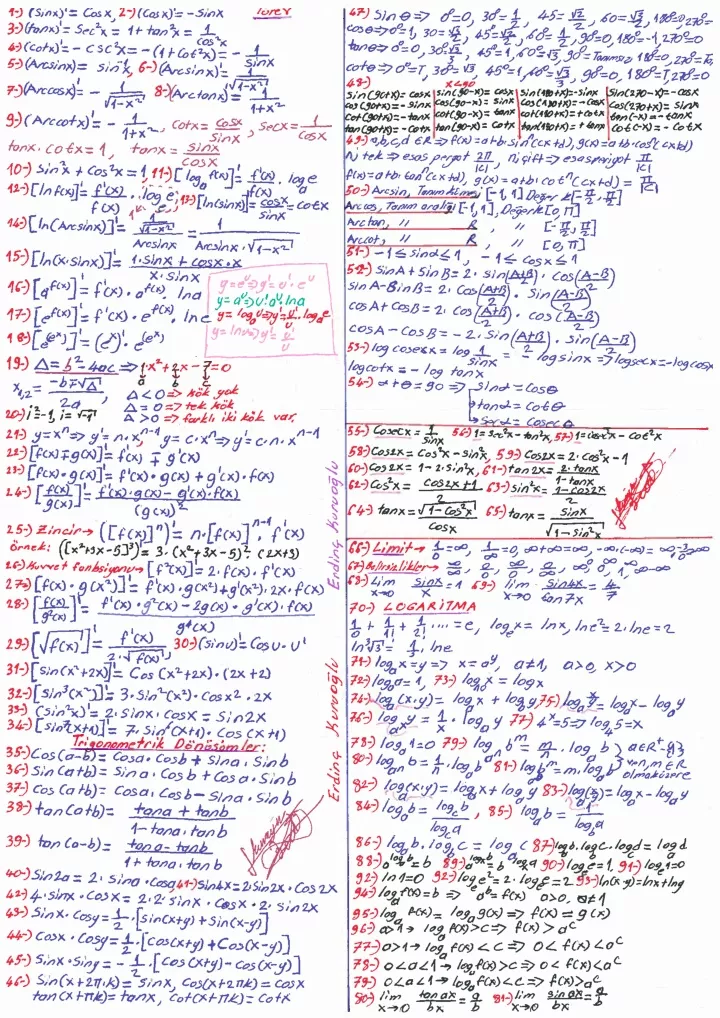 1-) (Sinx)'= Cosx, 2-) (Cosx)'= -Sinx
3-) (tanx)'= Sec²x = 1+tan²x = 1/cos²x
4-) (cotx)'= -CSC²x = -(1+Cot²x) = -1/Sin²x
7-) (Arccosx)'= -1/√(1-x²), 8-) (Arctanx)'= 1/(1+x²)
9-) (Arccotx)'= -1/(1+x²), cotx = cosx/sinx, Secx = 1/cosx
tanx.cotx=1, tanx = sinx/cosx
10-) Sin²x + Cos²x = 1, 11-) [log_a f(x)]'= f'(x)/f(x) . log_a e
12-) [ln f(x)]'= f'(x)/f(x) . log_e e, 13-) [ln(sinx)]'= cosx/sinx = cotx
14-) [ln(Arcsinx)]'= (1/√(1-x²))/Arcsinx = 1/(Arcsinx.√(1-x²))
15-) [ln(x.sinx)]'= (1.sinx + cosx.x)/(x.sinx)
16-) [a^f(x)]'= f'(x).a^f(x).lna
17-) [e^f(x)]'= f'(x).e^f(x).lne
y=e^u => y'=u'.e^u
y=a^u => u'.a^u.lna
y=log_a u => y'=u'/u.log_a e
y=lnu => y'=u'/u
19-) Δ=b²-4ac => 1x²+2x-7=0
a b c
Δ<0 => kök yok
Δ=0 => tek kök
Δ>0 => farklı iki kök var.
20-) i²=-1, i=√-1
21-) y=xⁿ => y'=n.xⁿ⁻¹, y=c.xⁿ => y'=c.n.xⁿ⁻¹
22-) [f(x)∓g(x)]'= f'(x)∓g'(x)
23-) [f(x).g(x)]'= f'(x).g(x)+g'(x).f(x)
24-) [f(x)/g(x)]'= (f'(x).g(x)-g'(x).f(x))/(g(x))²
25-) Zincir→ ([f(x)]ⁿ)'= n.[f(x)]ⁿ⁻¹.f'(x)
örnek: ([x²+3x-5]³)'= 3.(x²+3x-5)².(2x+3)
26-) Kuvvet fonksiyonu→ [f²(x)]'= 2.f(x).f'(x)
27-) [f(x).g(x²)]'= f'(x).g(x²)+g'(x²).2x.f(x)
28-) [f(x)/g²(x)]'= (f'(x).g²(x)-2g(x).g'(x).f(x))/g⁴(x)
29-) [√f(x)]'= f'(x)/(2.√f(x)), 30-) (sinu)'= Cosu.u'
31-) [sin(x²+2x)]'= Cos(x²+2x).(2x+2)
32-) [sin³(x²)]'= 3.Sin²(x²).Cosx².2x
33-) (Sin²x)'= 2.sinx.cosx = Sin2x
34-) [sin⁷(x+1)]'= 7.Sin⁶(x+1).Cos(x+1)
Trigonometrik Dönüşümler:
35-) Cos(a-b)= Cosa.Cosb + Sina.Sinb
36-) Sin(a+b)= Sina.Cosb + Cosa.Sinb
37-) Cos(a+b)= Cosa.Cosb - Sina.Sinb
38-) tan(a+b)= (tana + tanb)/(1-tana.tanb)
39-) tan(a-b)= (tana-tanb)/(1+tana.tanb)
40-) Sin2a = 2.Sina.Cosa, 41-) Sin4x=2.Sin2x.Cos2x
42-) 4.sinx.cosx = 2.2.sinx.cosx = 2.sin2x
43-) Sinx.Cosy= 1/2.[sin(x+y)+Sin(x-y)]
44-) Cosx.Cosy= 1/2.[cos(x+y)+Cos(x-y)]
45-) Sinx.Siny= -1/2.[cos(x+y)-cos(x-y)]
46-) Sin(x+2π.k)= Sinx, Cos(x+2πk)= cosx
tan(x+πk)= tanx, Cot(x+πk)= Cotx
Erdinç Kuruoğlu
Erdinç Kuruoğlu
48-) x<90
sin(90+x)= cosx sin(90-x)= cosx sin(180+x)=-sinx sin(270-x)=-cosx
cos(90+x)=-sinx cos(90-x)= sinx cos(180+x)=-cosx cos(270+x)= sinx
cot(90+x)=-tanx cot(90-x)= tanx cot(180+x)=+cotx tan(-x)=-tanx
tan(90+x)=-cotx tan(90-x)= Cotx tan(180+x)=+tanx cot(-x)=-Cotx
49-) a,b,c,d ∈R => f(x)=a+b.sinⁿ(cx+d), g(x)=a+b.cosⁿ(cx+d)
n; tek => esas periyot 2π/|c|, n; çift => esas periyot π/|c|
f(x)=a+b.tanⁿ(cx+d), g(x)=a+b.cotⁿ(cx+d) = π/|c|
50-) Arcsin, Tanım Kümesi [-1,1] Değer K[-π/2, π/2]
Arccos, Tanım aralığı [-1,1], Değer K[0,π]
Arctan, " R, " [-π/2, π/2]
Arccot, " R, " [0,π]
51-) -1≤sinα≤1, -1≤cosx≤1
52-) SinA+SinB= 2.sin((A+B)/2).cos((A-B)/2)
sinA-SinB= 2.cos((A+B)/2).Sin((A-B)/2)
cosA+CosB= 2.cos((A+B)/2).cos((A-B)/2)
cosA-CosB= -2.Sin((A+B)/2).sin((A-B)/2)
53-) log cosecx = log 1/sinx = -logsinx => logsecx=-logcosx
logcotx = -log tanx
54-) α+θ=90 => Sinα=Cosθ
tanα=Cotθ
Secα=Cosecθ
55-) Cosecx= 1/sinx 56-) 1=Sec²x-tan²x, 57-) 1=cosec²x-Cot²x
58-) Cos2x= Cos²x-Sin²x, 59-) Cos2x= 2.cos²x-1
60-) Cos2x= 1-2.sin²x, 61-) tan2x= 2.tanx/(1-tan²x)
62-) Cos²x= (Cos2x+1)/2, 63-) Sin²x= (1-Cos2x)/2
64-) tanx= √(1-Cos²x)/Cosx, 65-) tanx= Sinx/√(1-sin²x)
68-) Lim x→0 Sinx/x = 1 69-) lim x→0 Sin4x/tan7x = 4/7
70-) LOGARİTMA
1/0! + 1/1! + 1/2! .... = e, log_e x = lnx, lne²=2.lne=2
71-) log_a x=y => x=a^y, a≠1, a>0, x>0
72-) log_a a=1, 73-) log_10 x = logx
74-) log_a(x.y)= log_a x + log_a y, 75-) log_a x/y = log_a x - log_a y
77-) 4^x=5 => log_4 5=x
78-) log_a 1=0 79-) log_(a^n) b^m = m/n.log_a b } a∈R⁺-{1}
80-) log_(a^n) b= 1/n.log_a b 81-) log_a b^m=m.log_a b } ve n,m∈R olmak üzere
82-) log(x.y)= logx + logy 83-) log(x/y)= logx - logy
84-) log_a b = log_c b/log_c a, 85-) log_a b = 1/log_b a
86-) log_a b.log_b c = log_a c 87-) log_a b.log_b c.log_c d = log_a d
90-) log_e e=1, 91-) log_e 1=0
92-) ln1=0 92-) log_e e²=2.log_e e=2 93-) ln(x.y)=lnx+lny
94-) log_a f(x)=b => a^b=f(x) a>0, a≠1
95-) log_a f(x) = log_a g(x) => f(x)=g(x)
96-) a>1→ log_a f(x)>c => f(x)>a^c
77-) a>1→ log_a f(x)<c => 0<f(x)<a^c
78-) 0<a<1→ log_a f(x)>c => 0<f(x)<a^c
79-) 0<a<1→ log_a f(x)<c => f(x)>a^c
80-) lim x→0 tanax/bx = a/b 81-) lim x→0 sinax/bx = a/b